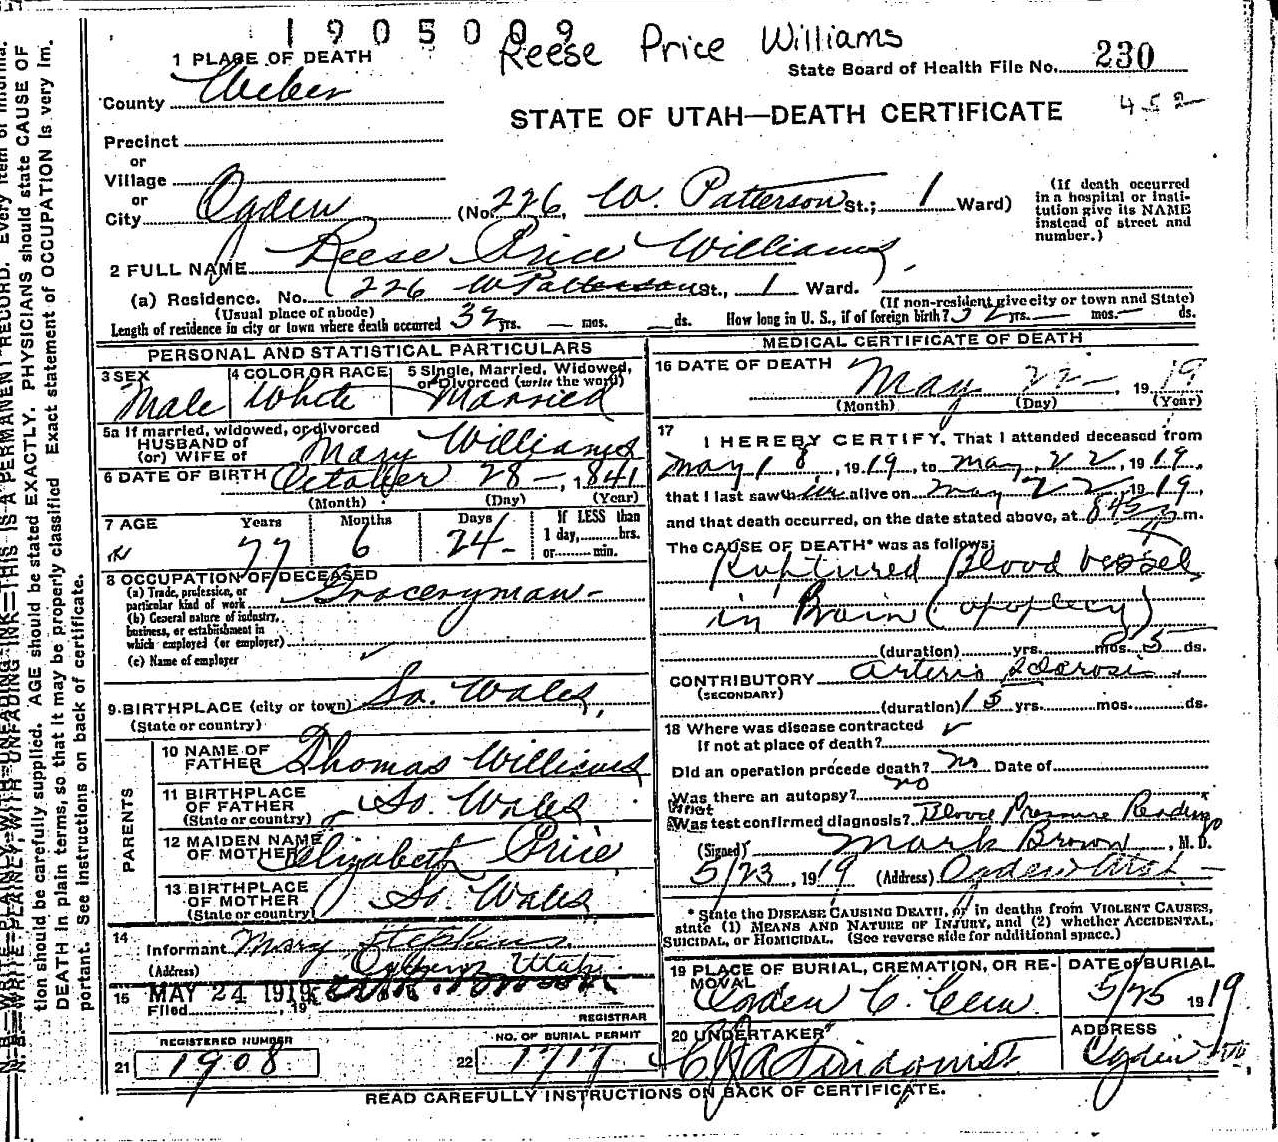 1905009
Reese Price Williams
1 PLACE OF DEATH
State Board of Health File No. 230
County Weber
STATE OF UTAH—DEATH CERTIFICATE
452
Precinct
or
Village
or
City Ogden (No. 226, W. Patterson St.; 1 Ward)
(If death occurred
in a hospital or insti-
tution give its NAME
instead of street and
number.)
2 FULL NAME Reese Price Williams
(a) Residence. No. 226 W Patterson St., 1 Ward.
(Usual place of abode)
(If non-resident give city or town and State)
Length of residence in city or town where death occurred 32 yrs. — mos. ds. How long in U. S., if of foreign birth? 32 yrs. — mos. — ds.
PERSONAL AND STATISTICAL PARTICULARS
3 SEX Male
4 COLOR OR RACE White
5 Single, Married, Widowed,
or Divorced (write the word)
Married
5a If married, widowed, or divorced
HUSBAND of
(or) WIFE of Mary Williams
6 DATE OF BIRTH October 28 —, 1841
(Month) (Day) (Year)
7 AGE Years Months Days If LESS than
77 6 24- 1 day, hrs.
or min.
8 OCCUPATION OF DECEASED
(a) Trade, profession, or
particular kind of work Groceryman -
(b) General nature of industry,
business, or establishment in
which employed (or employer)
(c) Name of employer
9 BIRTHPLACE (city or town) So. Wales,
(State or country)
PARENTS
10 NAME OF
FATHER Thomas Williams
11 BIRTHPLACE
OF FATHER So. Wales
(State or country)
12 MAIDEN NAME
OF MOTHER Elizabeth Price
13 BIRTHPLACE
OF MOTHER So. Wales
(State or country)
14
Informant Mary Stephens
(Address) Ogden, Utah
15 MAY 24 1919
Filed , 19
REGISTRAR
REGISTERED NUMBER
21 1908
NO. OF BURIAL PERMIT
22 1717
MEDICAL CERTIFICATE OF DEATH
16 DATE OF DEATH May 22-, 1919
(Month) (Day) (Year)
17
I HEREBY CERTIFY, That I attended deceased from
May 18, 1919, to May, 22, 1919,
that I last saw him alive on May 22, 1919,
and that death occurred, on the date stated above, at 845 p m.
The CAUSE OF DEATH* was as follows:
Ruptured Blood vessel
in Brain (apoplecy)
(duration) yrs. mos. 5 ds.
CONTRIBUTORY Arterio Sclerosis
(SECONDARY)
(duration) 15 yrs. mos. ds.
18 Where was disease contracted
If not at place of death?
Did an operation precede death? no Date of
Was there an autopsy? no
What test confirmed diagnosis? Blood Pressure Reading
(Signed) Mark Brown, M. D.
5/23, 1919 (Address) Ogden Utah -
* State the DISEASE CAUSING DEATH, or in deaths from VIOLENT CAUSES,
state (1) MEANS AND NATURE OF INJURY, and (2) whether ACCIDENTAL,
SUICIDAL, or HOMICIDAL. (See reverse side for additional space.)
19 PLACE OF BURIAL, CREMATION, OR RE-
MOVAL
Ogden C. Cem
DATE of BURIAL
5/25 1919
20 UNDERTAKER
Lindquist
ADDRESS
Ogden
READ CAREFULLY INSTRUCTIONS ON BACK OF CERTIFICATE.
N. B.—WRITE PLAINLY, WITH UNFADING INK—THIS IS A PERMANENT RECORD. Every item of informa-
tion should be carefully supplied. AGE should be stated EXACTLY. PHYSICIANS should state CAUSE OF
DEATH in plain terms, so that it may be properly classified. Exact statement of OCCUPATION is very im-
portant. See instructions on back of certificate.